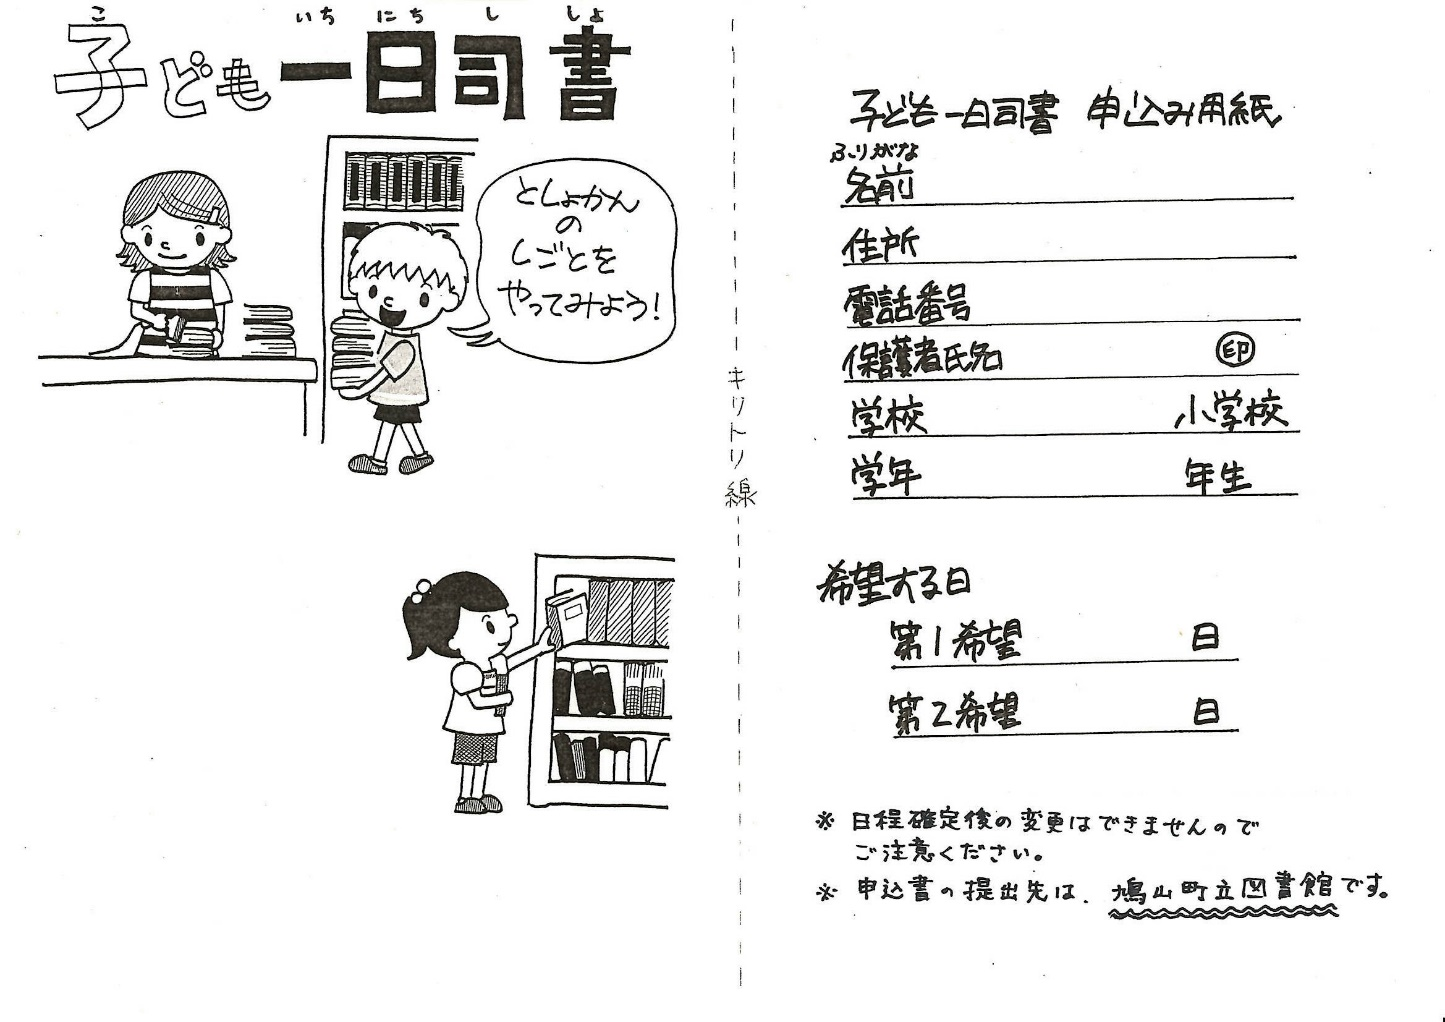 こ いち にち し しょ
子ども一日司書
としょかん
の
しごとを
やってみよう!
キリトリ線
子ども一日司書 申込み用紙
ふりがな
名前
住所
電話番号
保護者氏名 ㊞
学校 小学校
学年 年生
希望する日
第1希望 日
第2希望 日
※ 日程確定後の変更はできませんので
ご注意ください。
※ 申込書の提出先は、鳩山町立図書館です。